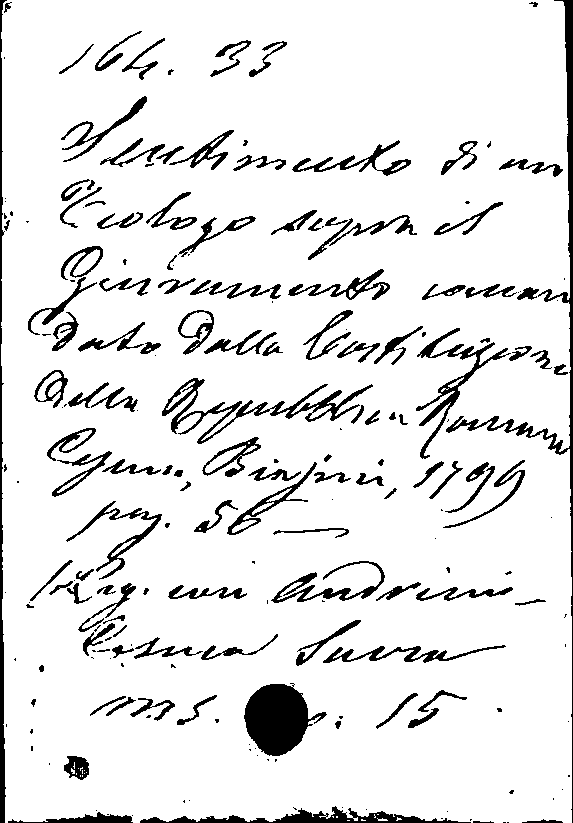 164. 33
Sentimento di un
Teologo sopra il
Giuramento coman
dato dalla Costituzione
della Repubblica Romana
Biagini, 1799
pag. 56 —
leg. con Andrini -
Cesura Sacra
ms. p: 15